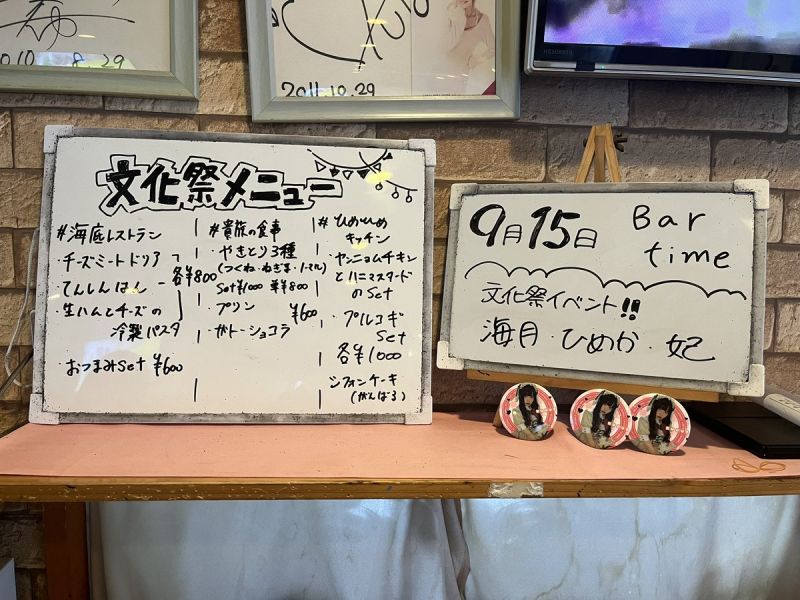 2011.10.29
文化祭メニュー
#海底レストラン
・チーズミートドリア
・てんしんはん
・生ハムとチーズの
冷製パスタ
各¥800
・おつまみset ¥600
#貴族の食事
・やきとり3種
(つくね・ねぎま・ノーマル)
set¥1000 単¥800
・プリン
・ガトーショコラ
¥600
#ひめひめ
キッチン
・ヤンニョムチキン
とハニマスタードの
set
・プルコギ
set
各¥1000
・シフォンケーキ
(がんばる)
9月15日
Bar
time
文化祭イベント!!
海月・ひめか・妃